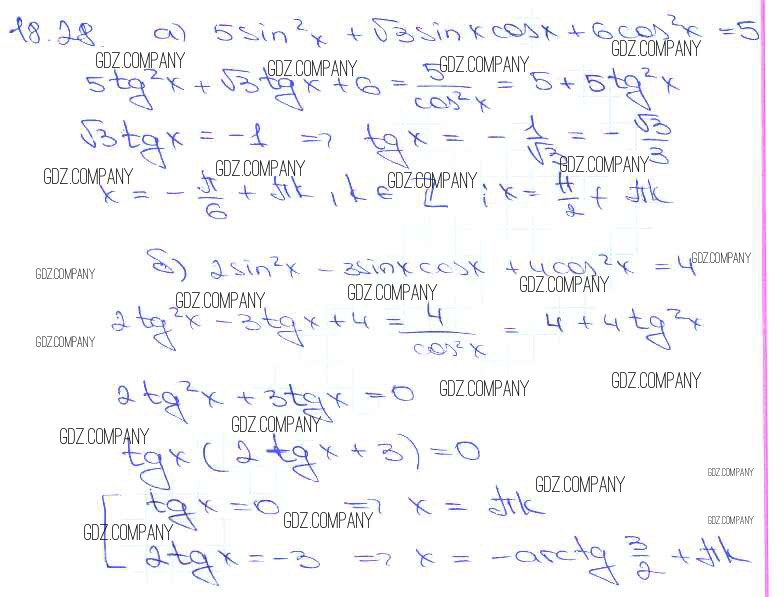 18.28. а) 5sin²x + √3sinxcosx + 6cos²x = 5
GDZ.COMPANY GDZ.COMPANY GDZ.COMPANY GDZ.COMPANY
5tg²x + √3tgx + 6 = 5/cos²x = 5 + 5tg²x
√3tgx = -1 => tgx = - 1/√3 = - √3/3
GDZ.COMPANY GDZ.COMPANY GDZ.COMPANY GDZ.COMPANY
x = - π/6 + πk, k ∈ Z ; x = π/2 + πk
б) 2sin²x - 3sinxcosx + 4cos²x = 4
GDZ.COMPANY GDZ.COMPANY
GDZ.COMPANY GDZ.COMPANY GDZ.COMPANY
2tg²x - 3tgx + 4 = 4/cos²x = 4 + 4tg²x
GDZ.COMPANY
2tg²x + 3tgx = 0
GDZ.COMPANY GDZ.COMPANY
GDZ.COMPANY GDZ.COMPANY
tgx (2tgx + 3) = 0
GDZ.COMPANY GDZ.COMPANY
[ tgx = 0 => x = πk
GDZ.COMPANY GDZ.COMPANY GDZ.COMPANY
2tgx = -3 => x = -arctg 3/2 + πk